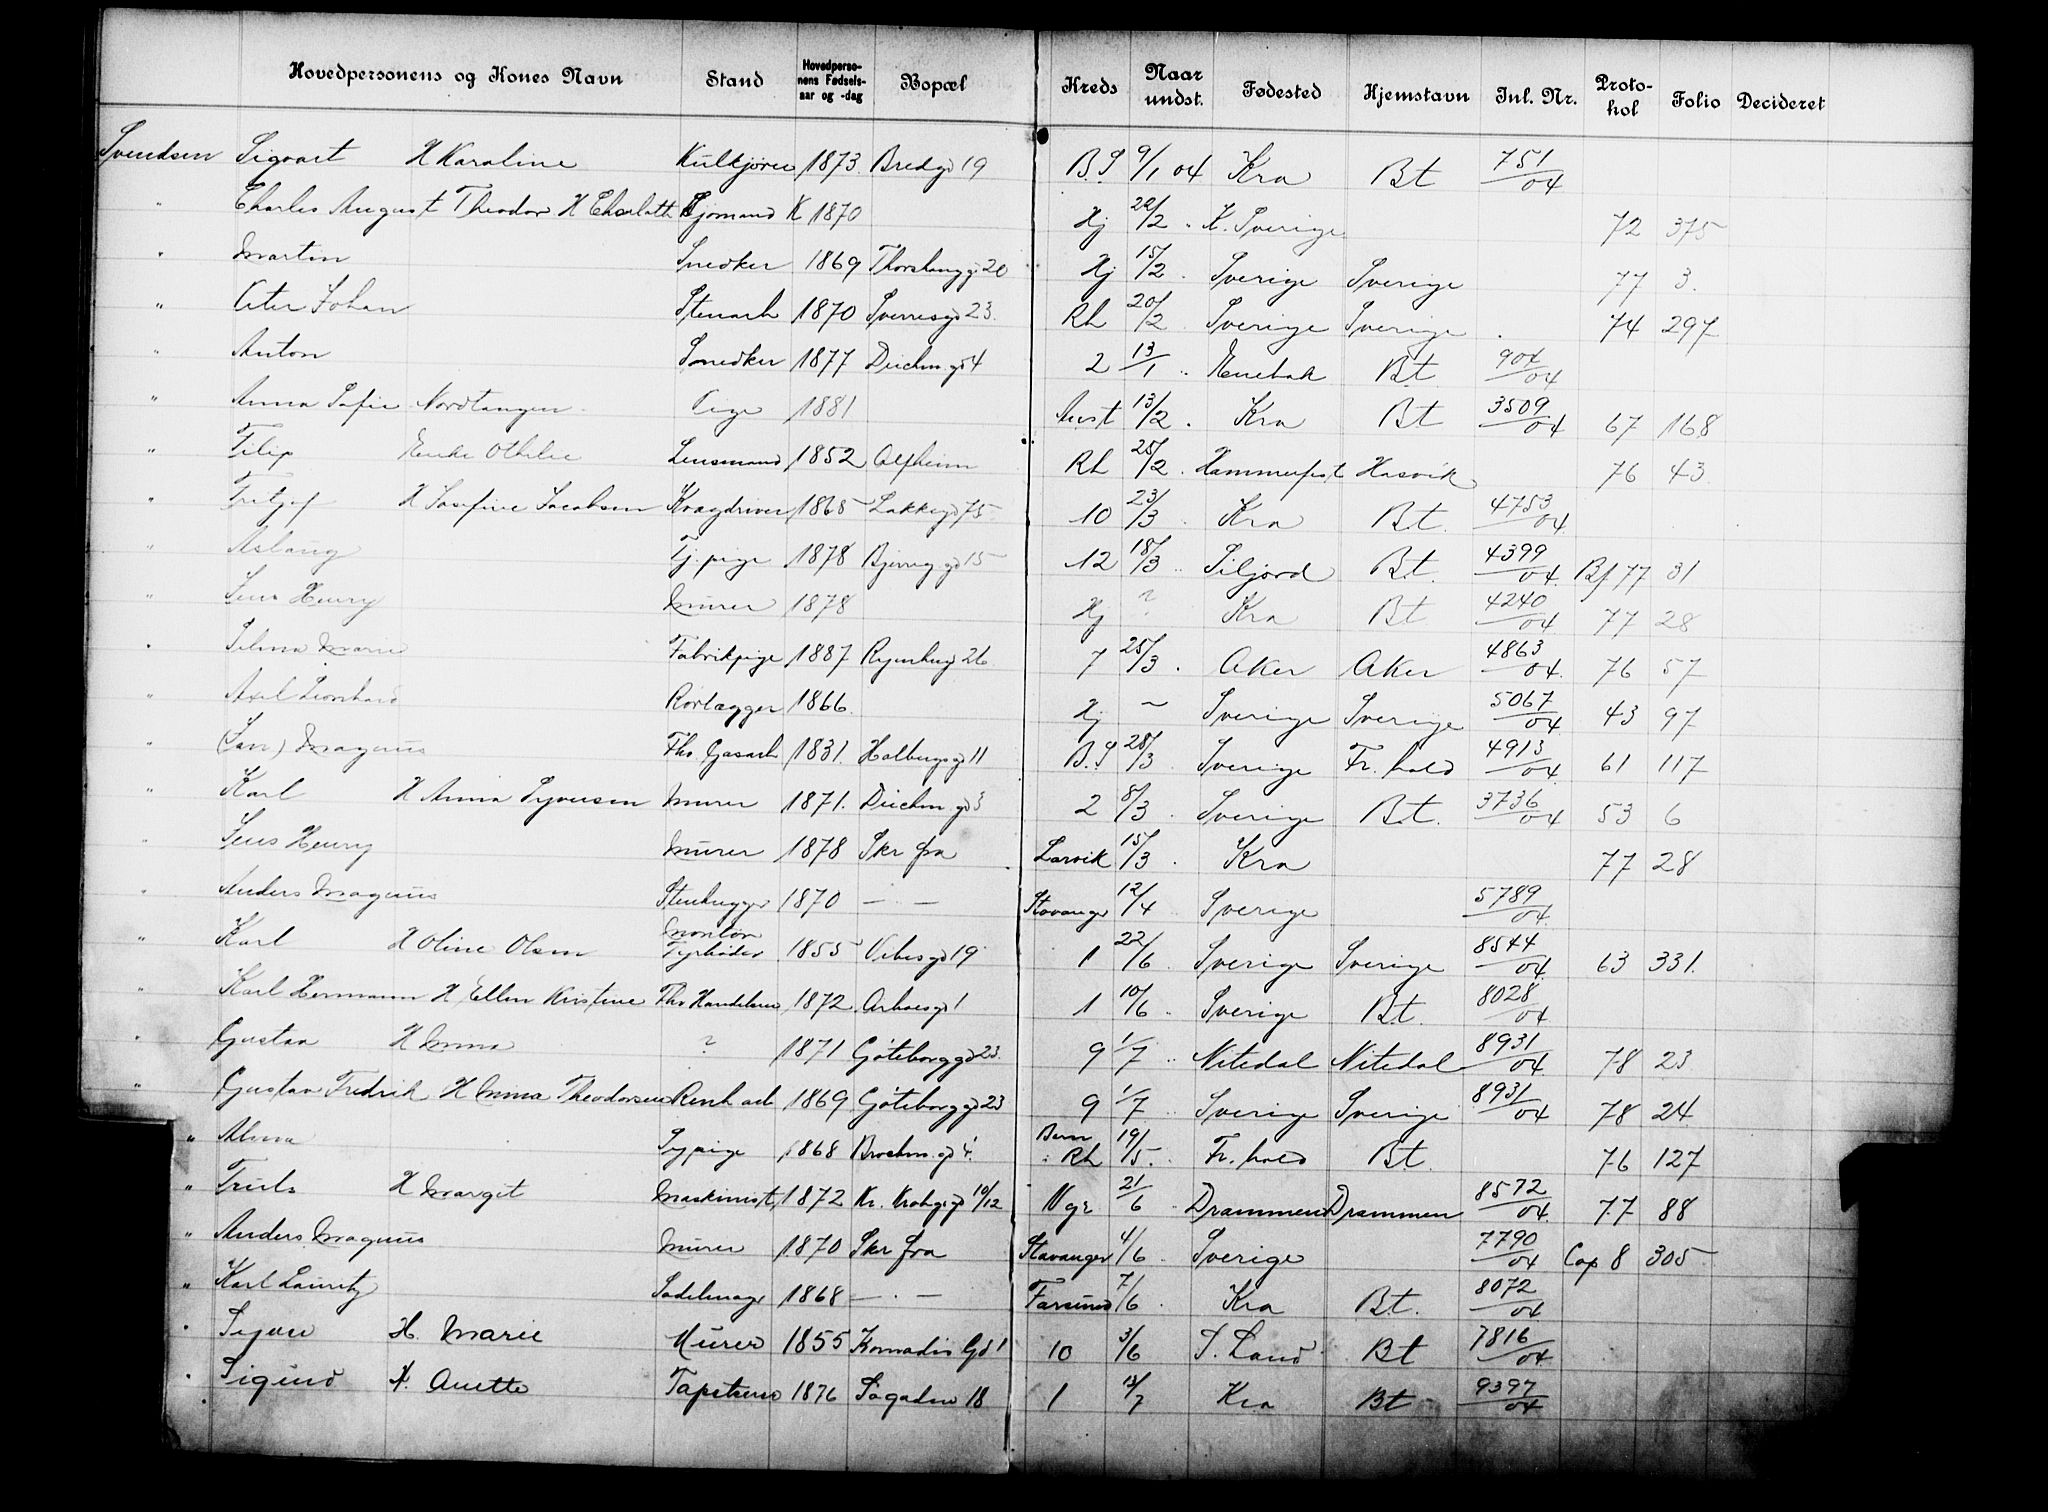 Hovedpersonens og Kones Navn Stand Hovedperso-nens Fødsels-aar og -dag Bopæl Kreds Naar undst. Fødested Hjemstavn Jnl. Nr. Proto-kol Folio Decideret
Svendsen Sigvart H Karoline Kulkjører 1873 Bredgd 19 B.S 9/1 04 Kra Bt 751/04
" Charles August Theodor H Charlotte Sjømand K 1870 Hj 22/2 " K. Sverige 72 375
" Martin Snedker 1869 20 Hj 15/2 " Sverige Sverige 77 3.
" Peter Johan Stenarb 1870 Sverresgd 23. Rh 20/2 Sverige Sverige 74 297
" Anton Snedker 1877 Deichm.gd 4 2 13/1 " Enebak Bt. 904/04
" Anna Sofie Nordtangen Pige 1881 Aust 13/2 " Kra Bt 3509/04 67 168
" Filip Enke Othilie Lensmand 1852 Alfheim Rh 25/2 " Hammerfest Hasvik 76 43.
" Fritjof H Josefine Jacobsen 1865 Lakkegd 75 10 23/3 " Kra Bt. 4753/04
" Aslaug Tj. pige 1878 15 12 18/3 " Siljord Bt. 4399/04 Bf 77 31
" Jens Henry Murer 1878 Hj ? Kra Bt 4240/04 77 28
" Selma Marie Fabrikpige 1887 26 7 25/3 " Aker Aker 4863/04 76 57
" Axel Leonhard Rørlægger 1866. Hj ~ Sverige Sverige 5067/04 43 97
" (Jan) Magnus Fhv. Gasarb 1831. Holbergsgd 11 B.S 28/3 Sverige Fr. hald 4913/04 61 117
" Karl H Anna Syversen Murer 1871. Deichm.gd 3 2 8/3 " Sverige Bt. 3736/04 53 6
" Jens Henry Murer 1878 Skr fra Larvik 15/3 " Kra 77 28
" Anders Magnus Stenhugger 1870 — " — Stavanger 12/4 " Sverige 5789/04
" Karl H Oline Olsen Montør Fyrbøder 1855 Vibesgd 19 1 22/6 " Sverige Sverige 8544/04 63 331.
" Karl Hermann H Ellen Kristine Fhv Handelsm 1872 1 1 10/6 " Sverige Bt. 8028/04
" Gustav H Emma ? 1871 Göteborggd 23. 9 1/7 " Nitedal Nitedal 8931/04 78 23
" Gustav Fredrik H Emma Theodorsen Renh arb 1869 Göteborggd 23 9 1/7 " Sverige Sverige 8931/04 78 24
" Alma Sypige 1868 Brochm.gd 4. Rh 19/5. " Fr. hald Bt. 76 127
" Truls H Margit Maskinist 1872 Kr. Krohgsgd 10/12 Vgr 21/6 " Drammen Drammen 8572/04 77 88
" Anders Magnus Murer 1870 Skr fra Stavanger 4/6 " Sverige 7790/04 Cop 8 305
" Karl Lauritz Sadelmager 1868 — " — Farsund 7/6 " Kra Bt. 8072/04
" Syver H. Marie Murer 1855 Konradis Gd 1 10 3/6 S. Land Bt 7816/04
" Sigurd H. Anette Tapetserer 1876 Søgaden 18 1 12/7 Kra Bt 9397/04